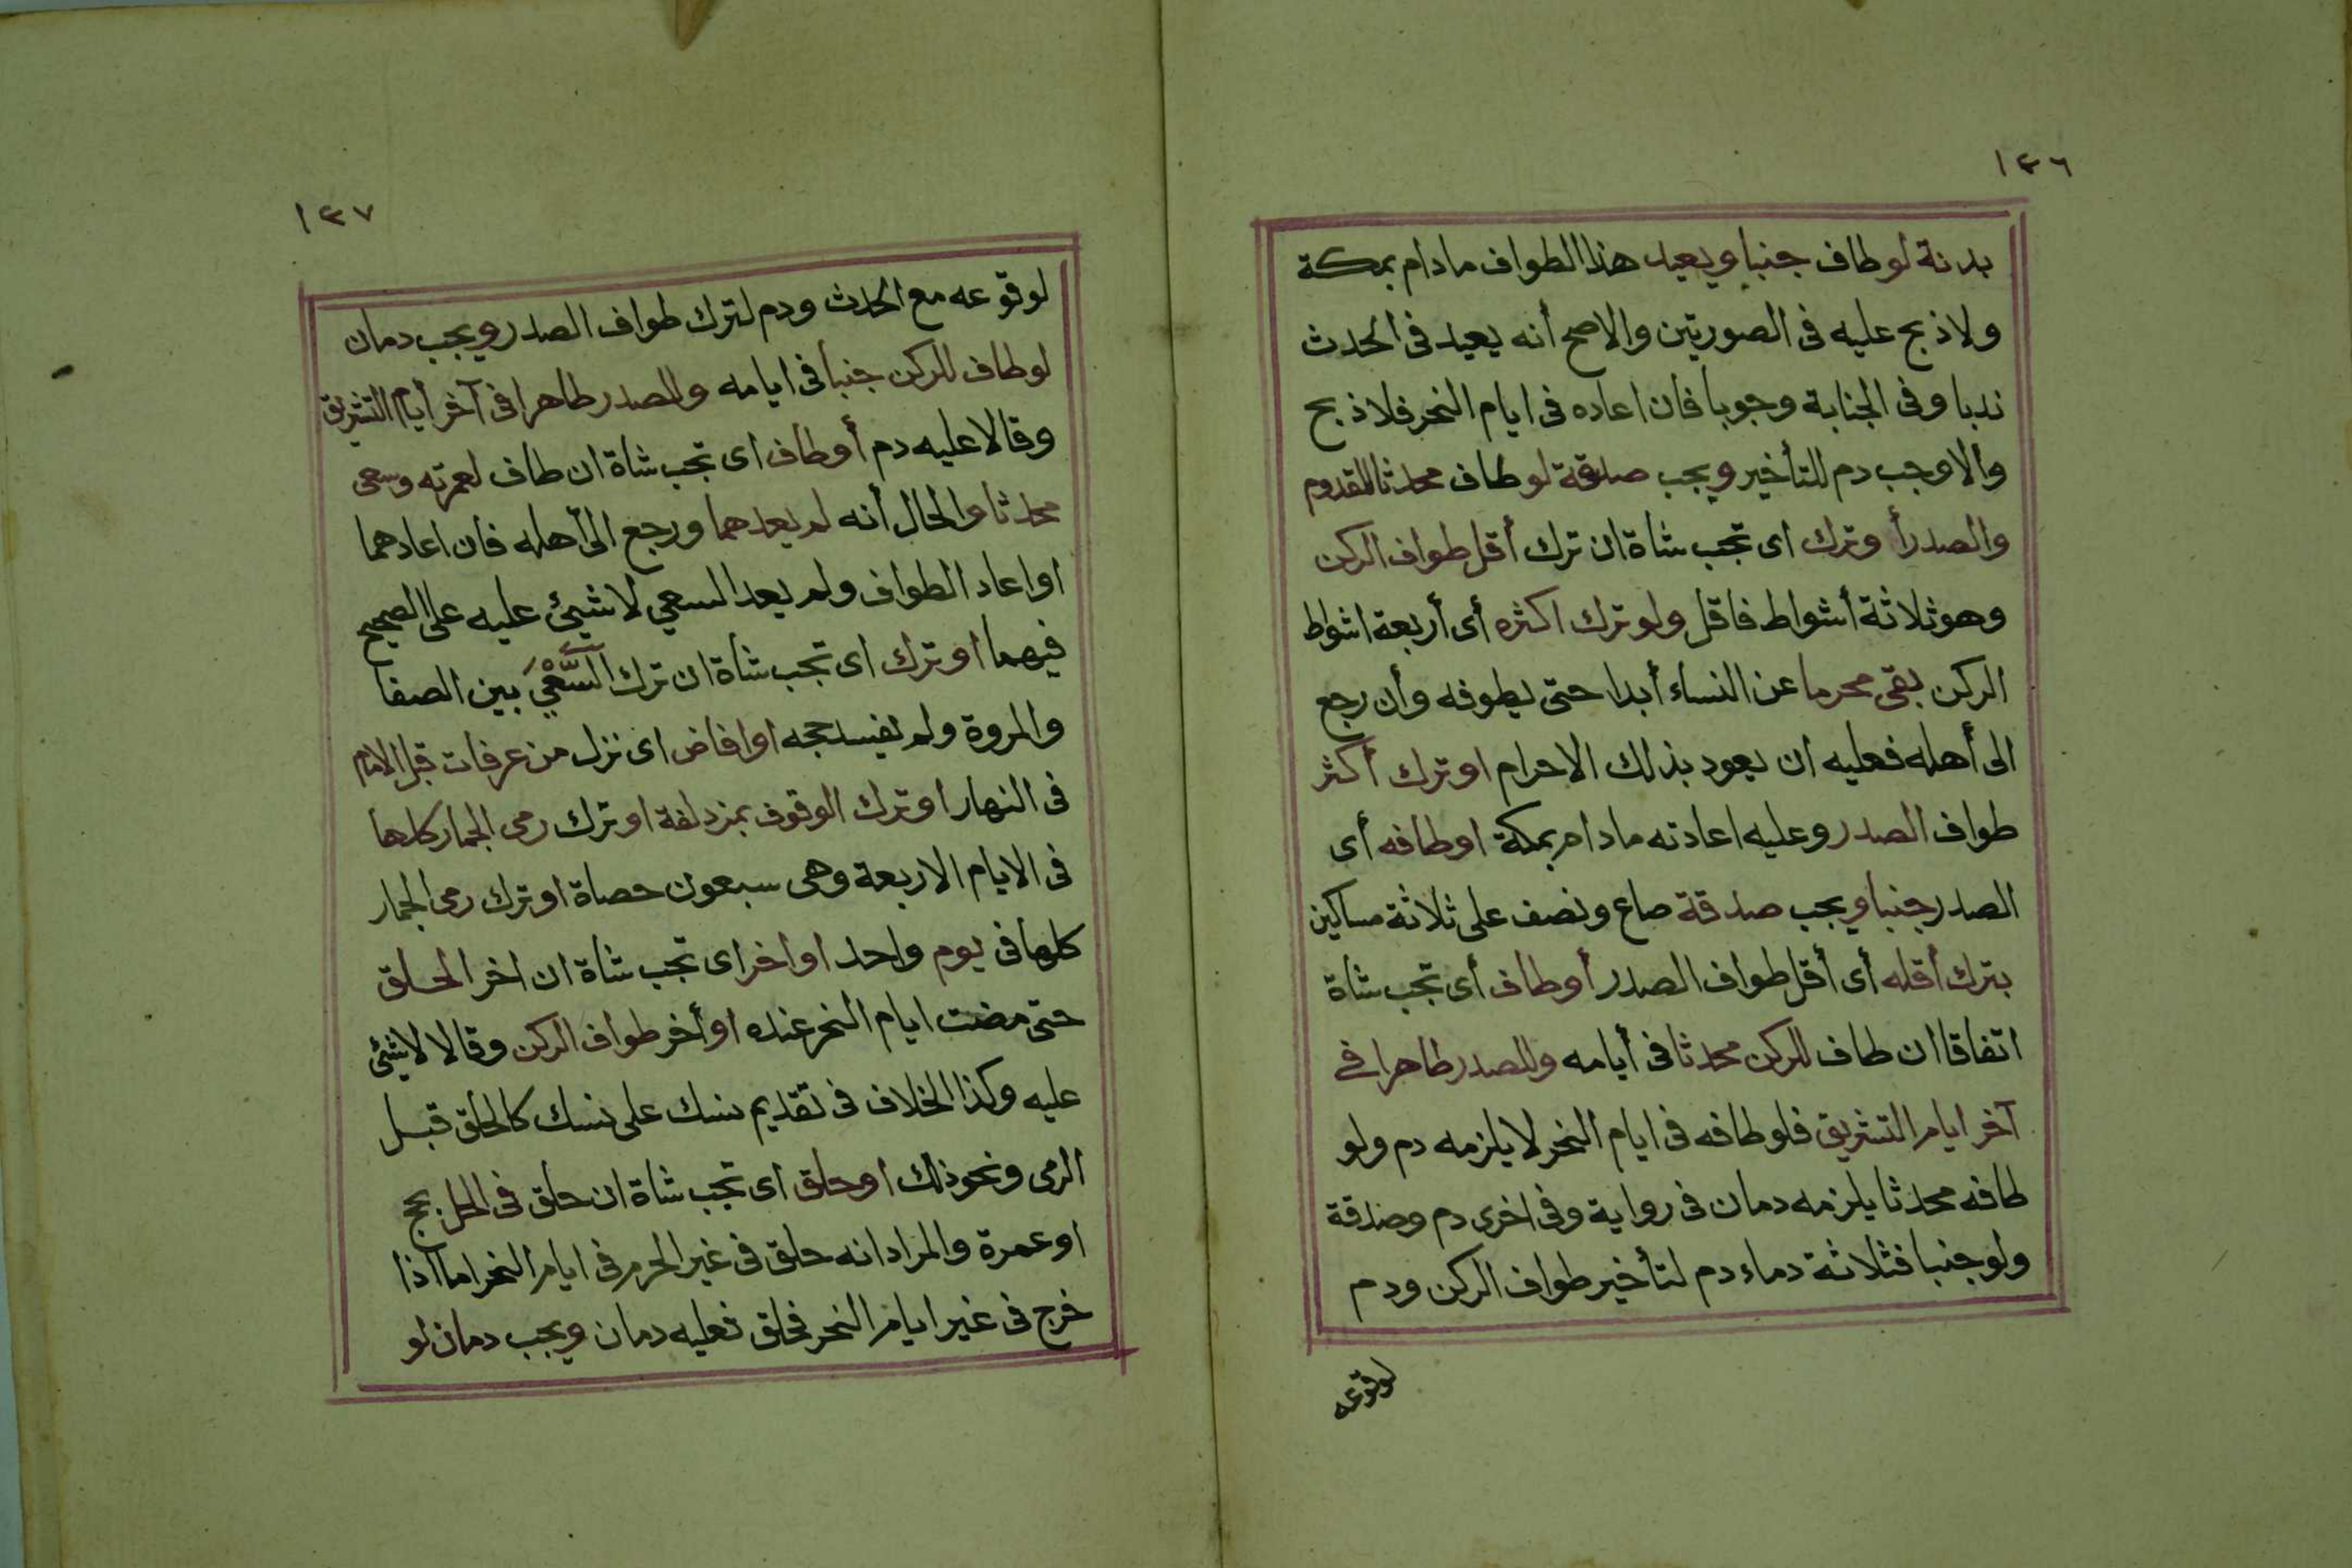 ١٤٦
بدنة لو طاف جنبا ويعيد هذا الطواف مادام بمكة
ولا ذبح عليه فى الصورتين والاصح أنه يعيد فى الحدث
ندبا وفى الجنابة وجوبا فأن اعاده فى ايام النحر فلا ذبح
والا وجب دم للتأخير ويجب صدقة لو طاف محدثا للقدوم
والصدر أو ترك اى تجب شاة ان ترك أقل طواف الركن
وهو ثلاثة أشواط فاقل ولو ترك اكثره أى أربعة اشواط
الركن بقى محرما عن النساء أبدا حتى يطوفه وأن رجع
الى أهله فعليه ان يعود بذلك الاحرام او ترك أكثر
طواف الصدر وعليه اعادته مادام بمكة او طافه أى
الصدر جنبا ويجب صدقة صاع ونصف على ثلاثة مساكين
بترك أقله أى أقل طواف الصدر أو طاف أى تجب شاة
اتفاقا ان طاف للركن محدثا فى أيامه وللصدر طاهرا فى
آخر ايام التشريق فلو طافه فى ايام النحر لا يلزمه دم ولو
طافه محدثا يلزمه دمان فى رواية وفى اخرى دم وصدقة
ولو جنبا فثلاثة دماء دم لتأخير طواف الركن ودم
لوقوعه
١٤٧
لوقوعه مع الحدث ودم لترك طواف الصدر ويجب دمان
لو طاف للركن جنبا فى ايامه وللصدر طاهرا فى آخر أيام التشريق
وقالا عليه دم أو طاف اى تجب شاة ان طاف لعمرته وسعى
محدثا والحال أنه لم يعدهما ورجع الى أهله فان اعادهما
او اعاد الطواف ولم يعد السعي لا شيئ عليه على الصحيح
فيهما او ترك اى تجب شاة ان ترك السَّعْيَ بين الصفا
والمروة ولم يفسد حجه او افاض اى نزل من عرفات قبل الامام
فى النهار او ترك الوقوف بمزدلفة او ترك رمى الجمار كلها
فى الايام الاربعة وهى سبعون حصاة او ترك رمى الجمار
كلها فى يوم واحد او اخر اى تجب شاة ان اخر الحلق
حتى مضت ايام النحر عنده او أخر طواف الركن وقالا لا شيئ
عليه وكذا الخلاف فى تقديم نسك على نسك كالحلق قبل
الرمى ونحو ذلك او حلق اى تجب شاة ان حلق فى الحل بحج
او عمرة والمراد انه حلق فى غير الحرم فى ايام النحر اما اذا
خرج فى غير ايام النحر فحلق فعليه دمان ويجب دمان لو